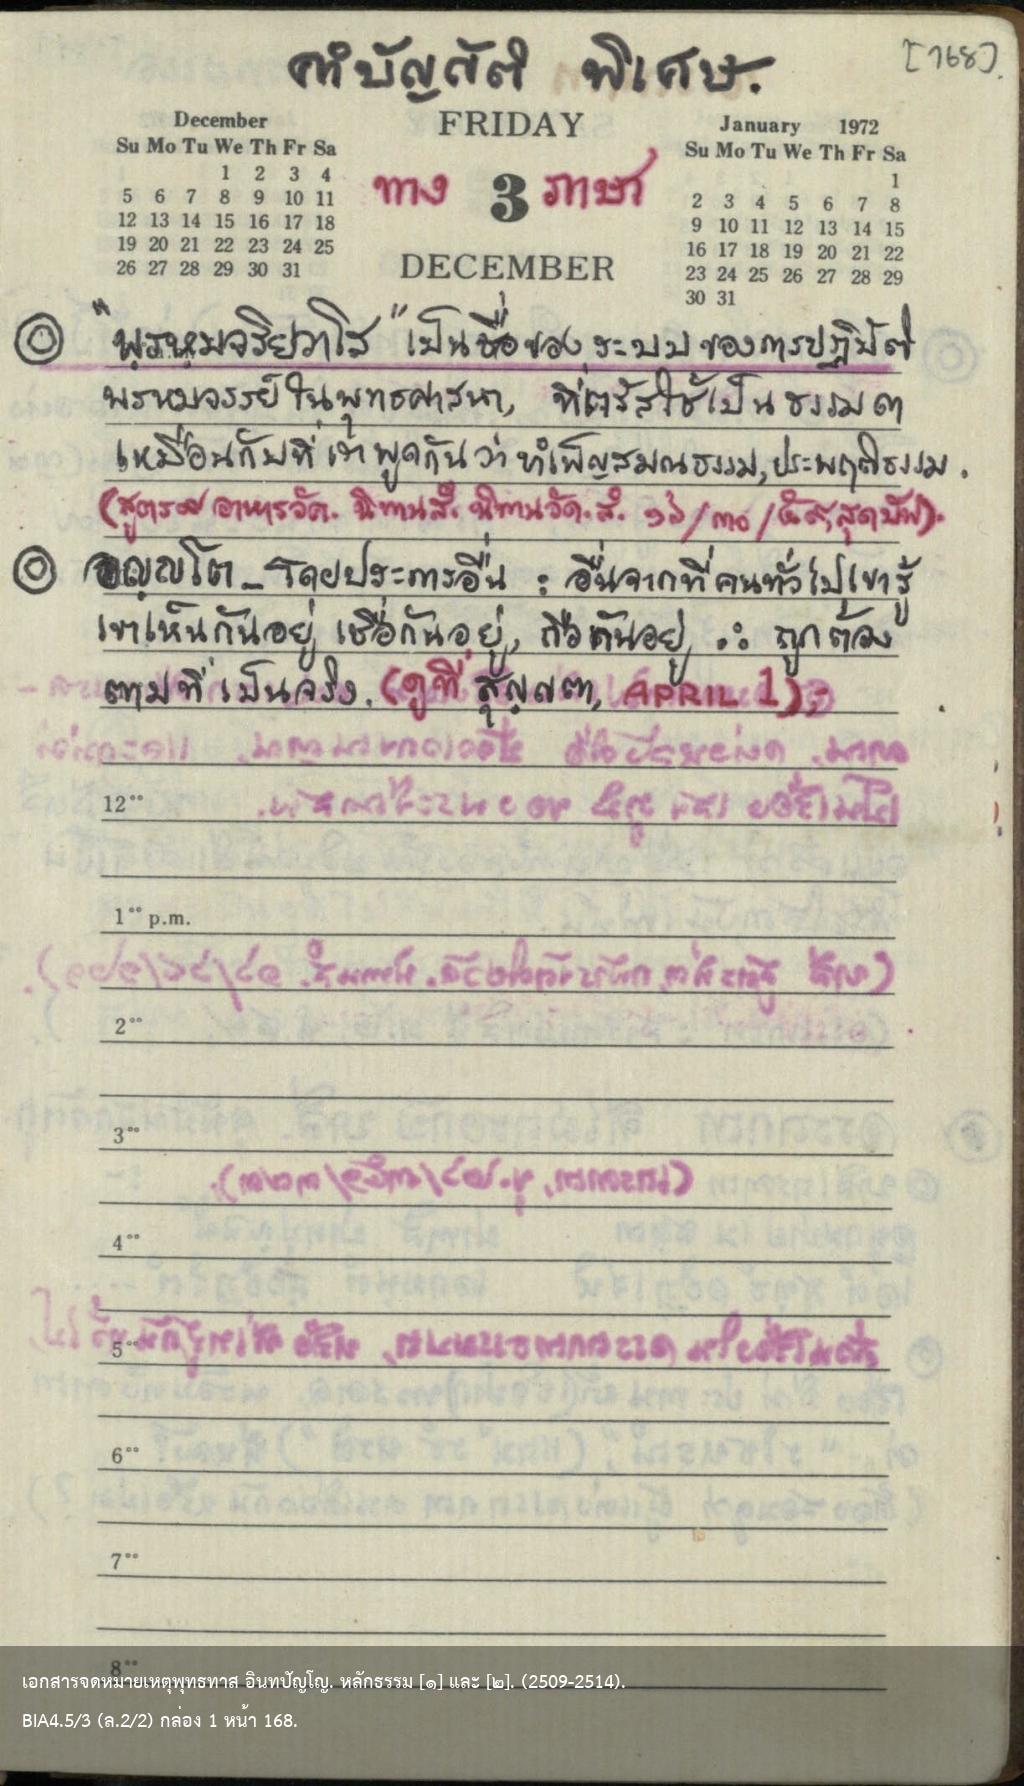 คำบัญญัติ พิเศษ.
[168].
December
Su Mo Tu We Th Fr Sa
1 2 3 4
5 6 7 8 9 10 11
12 13 14 15 16 17 18
19 20 21 22 23 24 25
26 27 28 29 30 31
FRIDAY
ทาง 3 ภาษา
DECEMBER
January 1972
Su Mo Tu We Th Fr Sa
1
2 3 4 5 6 7 8
9 10 11 12 13 14 15
16 17 18 19 20 21 22
23 24 25 26 27 28 29
30 31
"พฺรหฺมจริยวาโส" เป็นชื่อของ ระบบ ของการปฏิบัติ
พรหมจรรย์ ในพุทธศาสนา, ที่ตรัสใช้เป็น ธรรมดา
เหมือนกับที่ เรา พูดกัน ว่า บำเพ็ญสมณธรรม, ประพฤติธรรม.
อญฺญโต - โดยประการอื่น : อื่นจากที่คนทั่วไปเขารู้
เขาเห็นกันอยู่ เชื่อกันอยู่, ถือกันอยู่ ∴ ถูกต้อง
ตามที่เป็นจริง. (ดูที่ สุญฺญตา, APRIL 1);
12⁰⁰
1⁰⁰ p.m.
2⁰⁰
3⁰⁰
4⁰⁰
5⁰⁰
6⁰⁰
7⁰⁰
8⁰⁰
เอกสารจดหมายเหตุพุทธทาส อินทปัญโญ. หลักธรรม [๑] และ [๒]. (2509-2514).
BIA4.5/3 (ล.2/2) กล่อง 1 หน้า 168.